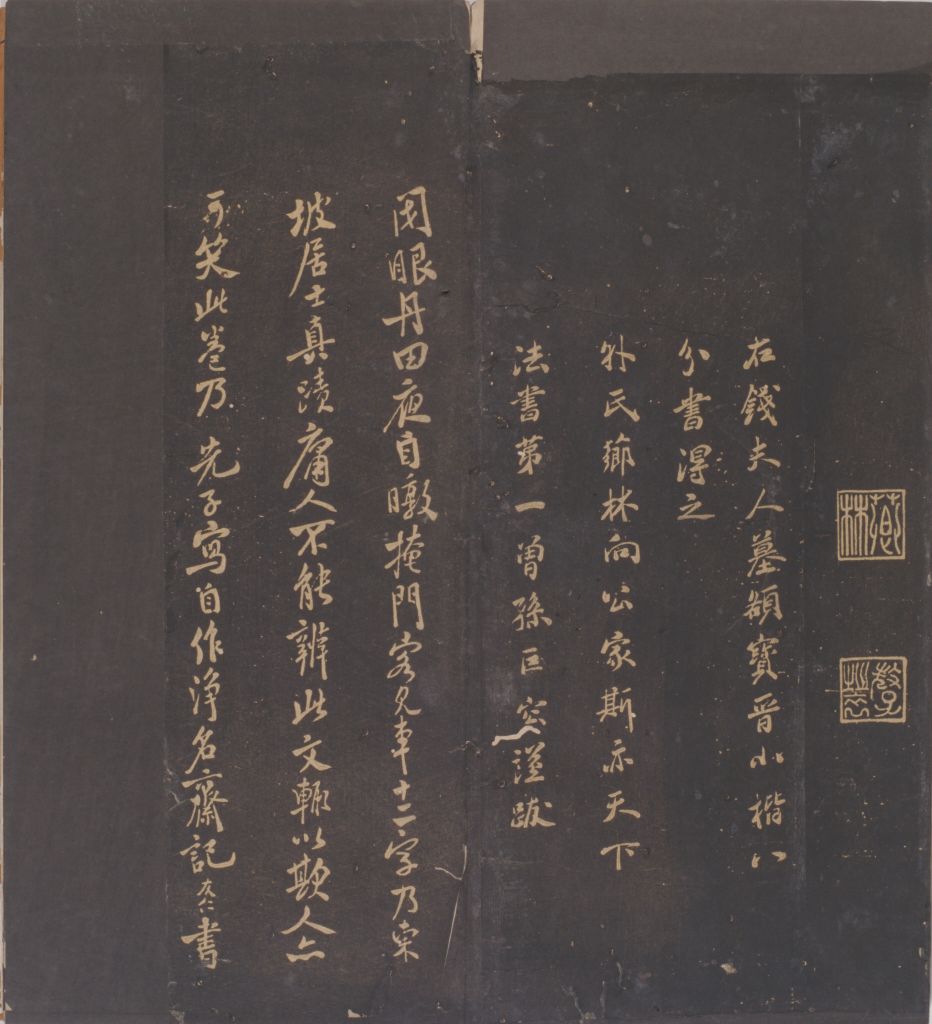 薌林
右錢夫人墓額寶晉小楷八
分書得之
外氏薌林向公家斯亦天下
法書第一曾孫巨謹跋
閉眼丹田夜自暾掩門客見車十二字乃東
坡居士真蹟庸人不能辨此文輒以欺人亦
可笑此卷乃先子寫自作淨名齋記友仁書